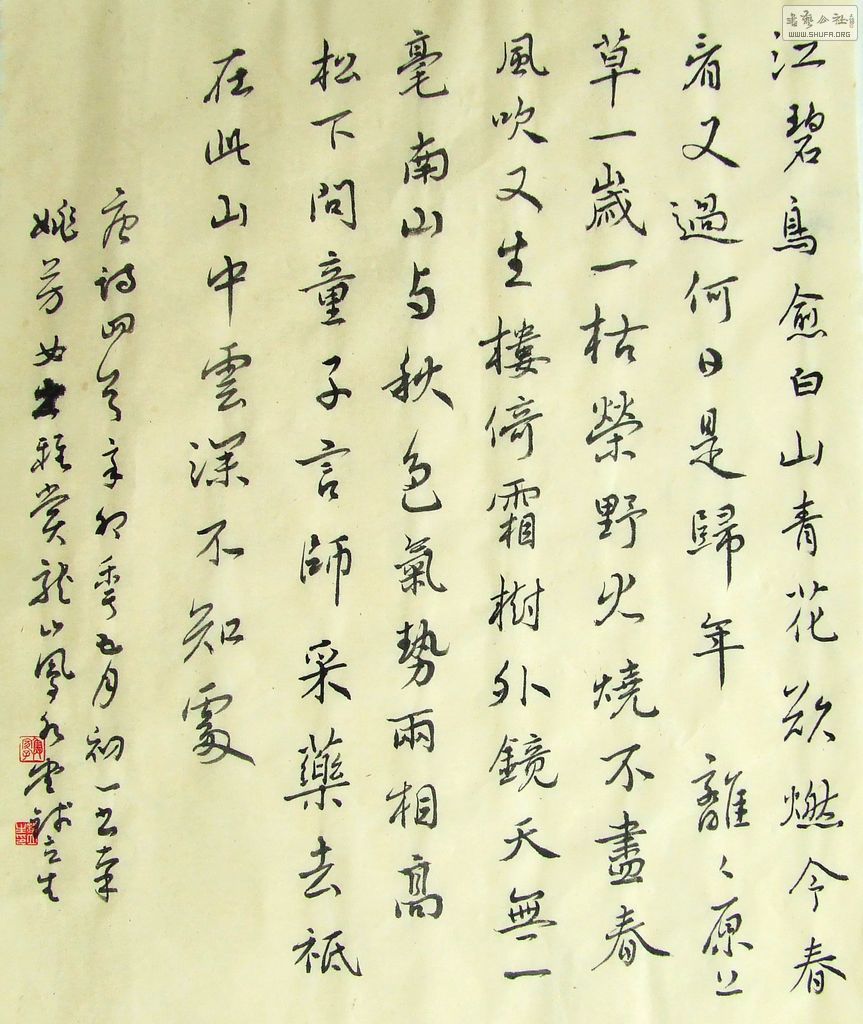 江碧鳥愈白山青花欲燃今春
看又過何日是歸年 離〻原上
草一歲一枯榮野火燒不盡春
風吹又生樓倚霜樹外鏡天無一
毫南山与秋色氣勢兩相高
松下問童子言師采藥去祇
在此山中雲深不知處
唐詩四首辛卯秊五月初一书奉
姚芳女士雅賞龍山鳳
書藝公社
WWW.SHUFA.ORG